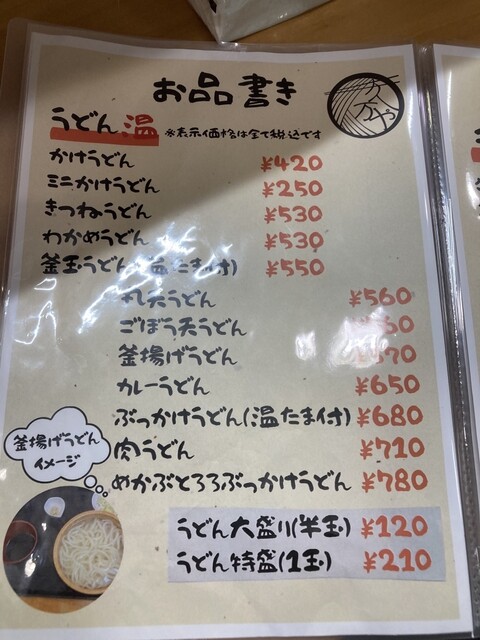 お品書き
うどん 温 ※表示価格は全て税込です
かけうどん ¥420
ミニかけうどん ¥250
きつねうどん ¥530
わかめうどん ¥530
釜玉うどん(温たま付) ¥550
丸天うどん ¥560
ごぼう天うどん
釜揚げうどん
カレーうどん ¥650
ぶっかけうどん(温たま付) ¥680
肉うどん ¥710
めかぶとろろぶっかけうどん ¥780
うどん大盛り(半玉) ¥120
うどん特盛(1玉) ¥210
釜揚げうどん
イメージ